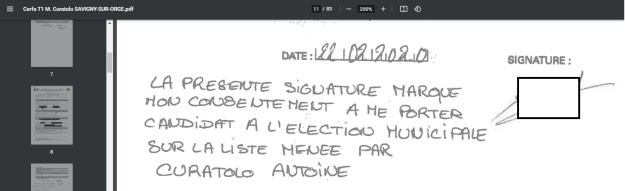 Cerfa T1 M. Curatolo SAVIGNY-SUR-ORGE.pdf
11 / 83
200%
7
8
DATE: 22/02/2020
SIGNATURE :
LA PRESENTE SIGNATURE MARQUE
MON CONSENTEMENT A ME PORTER
CANDIDAT A L'ELECTION MUNICIPALE
SUR LA LISTE MENEE PAR
CURATOLO ANTOINE